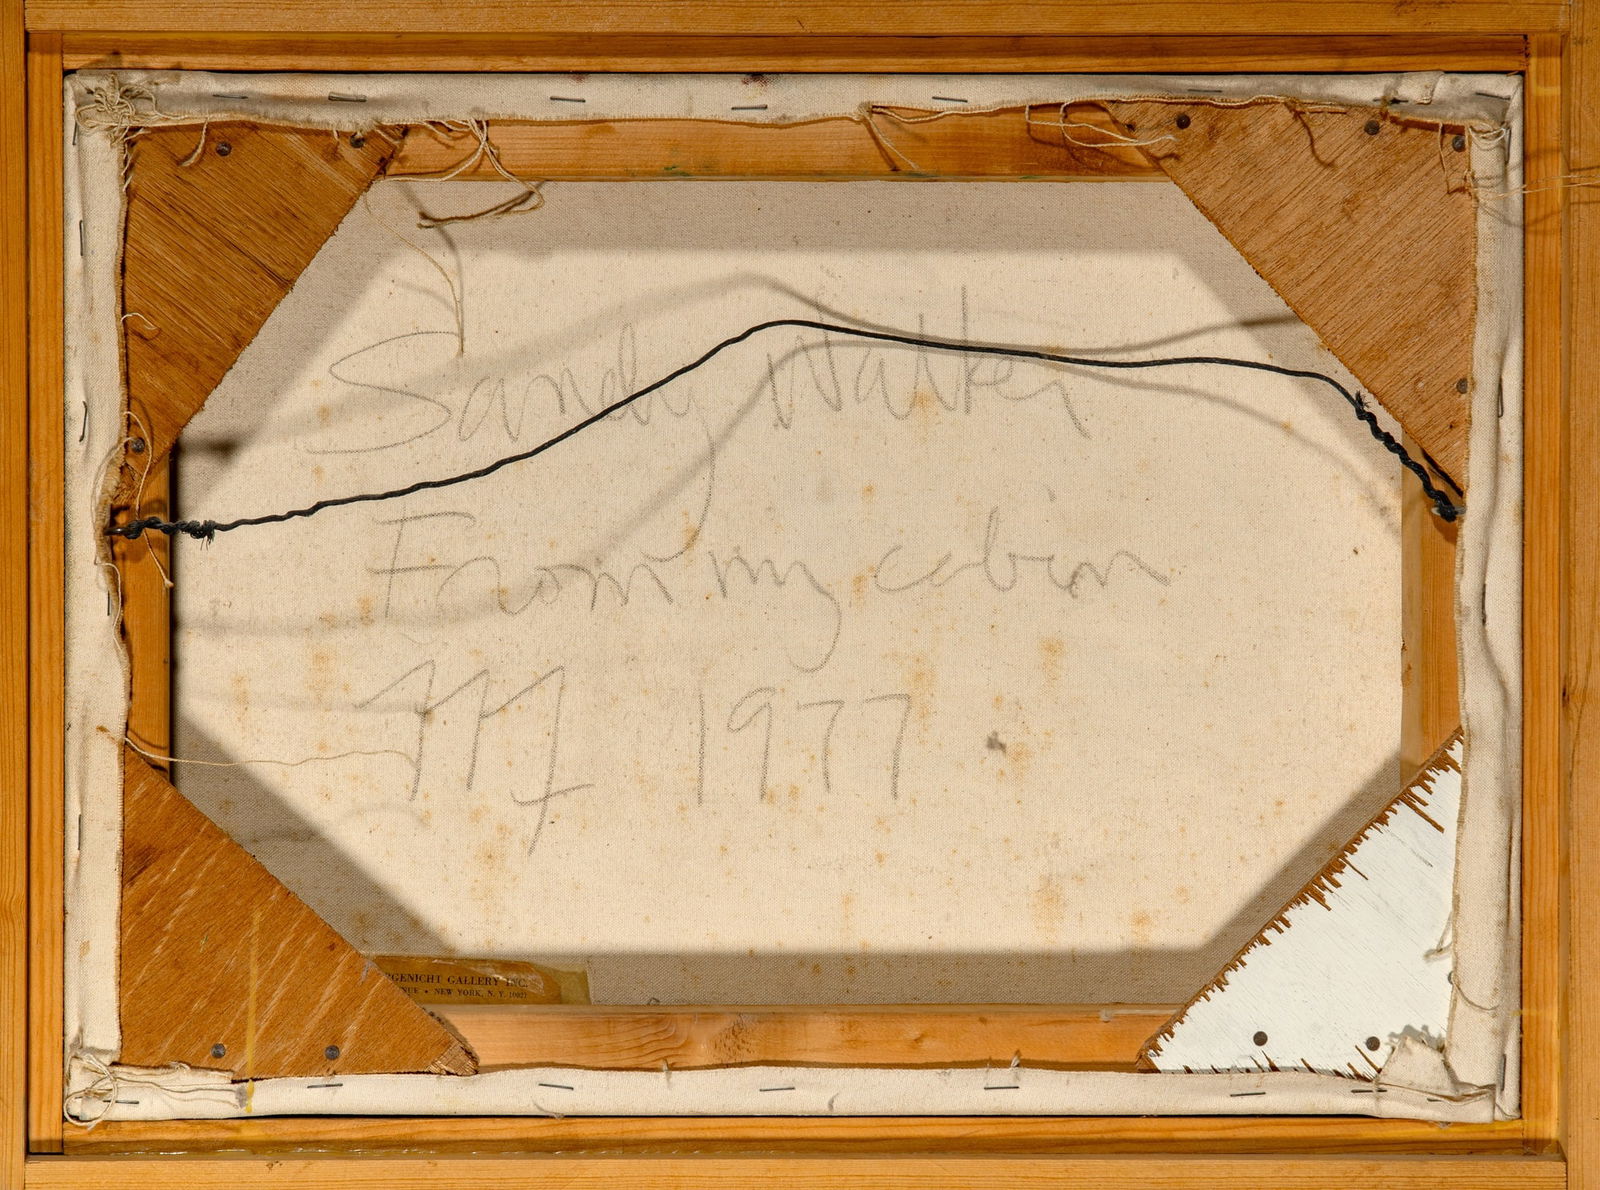 Sandy Walker
From my cabin
1977
RGENICHT GALLERY INC.
NUE • NEW YORK, N. Y. 10021